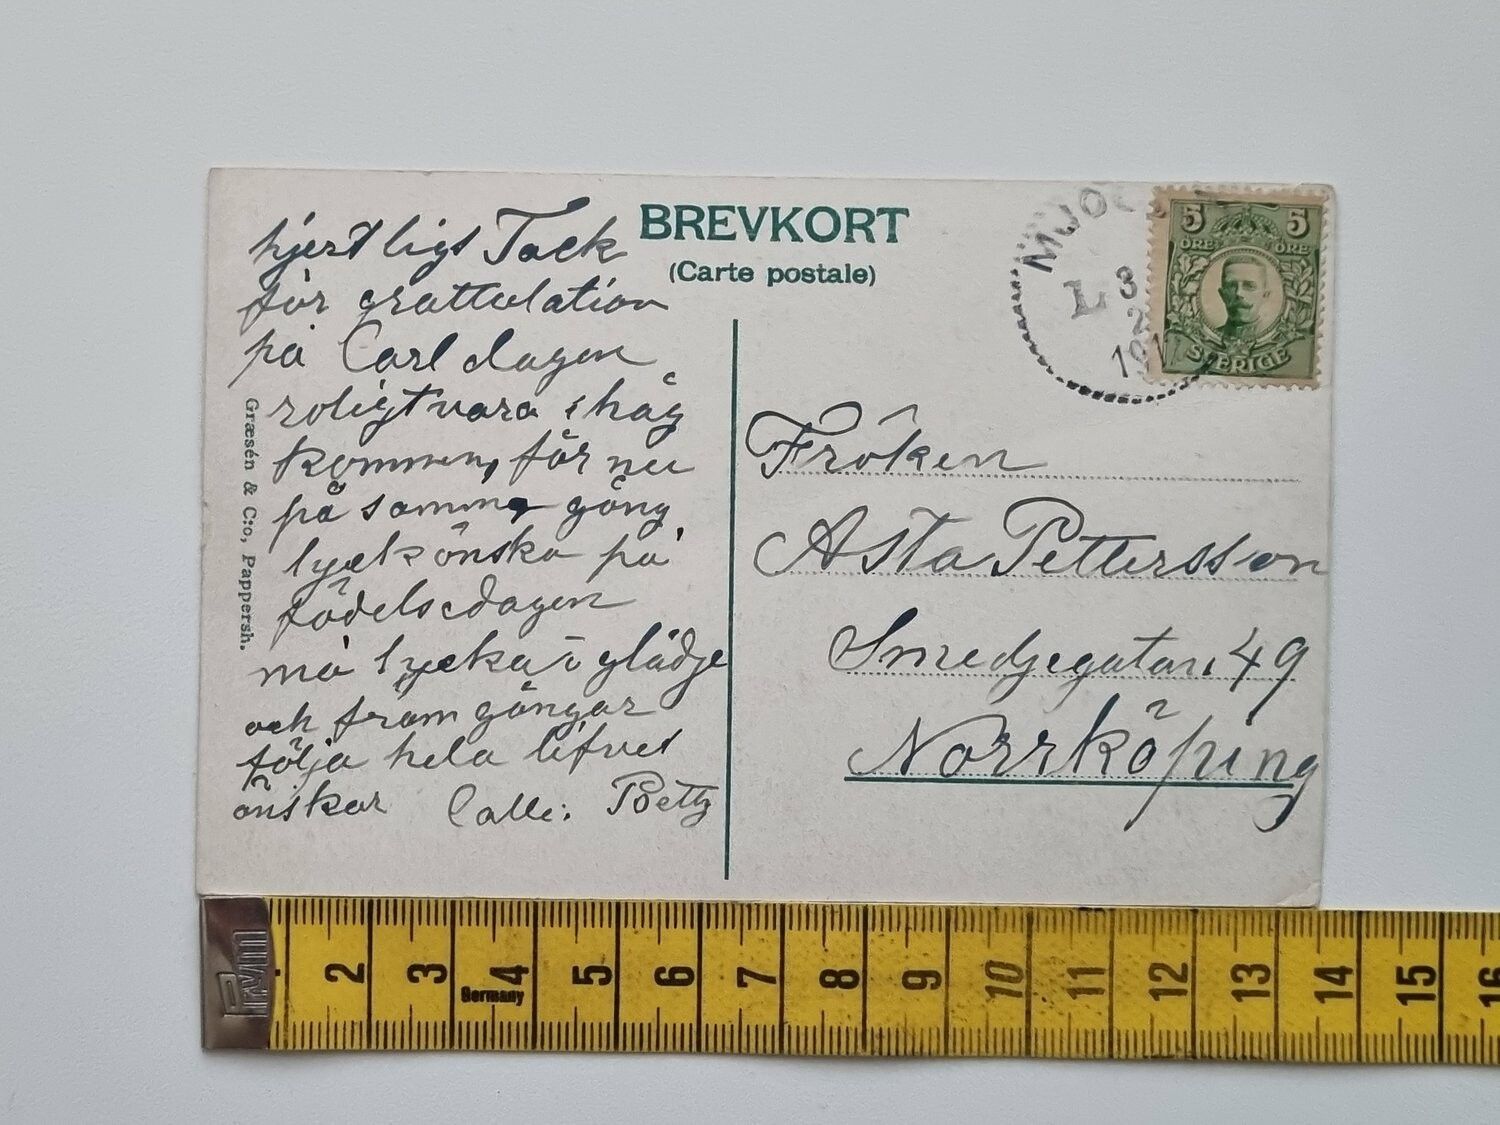 hjertligt Tack
för grattulation
på Carl dagen
roligt vara i håg
kommen, för nu
på samma gång
lyckönska på
födelsedagen
må lycka o glädje
och framgångar
följa hela lifvet
önskar Calle: Poettz
Græsén & C:o, Pappersh.
BREVKORT
(Carte postale)
MJÖ
L 3
2
191
5 5
ÖRE ÖRE
SVERIGE
Fröken
Asta Pettersson
Smedjegatan 49
Norrköping
2 3 4 5 6 7 8 9 10 11 12 13 14 15 16
Germany
Prym